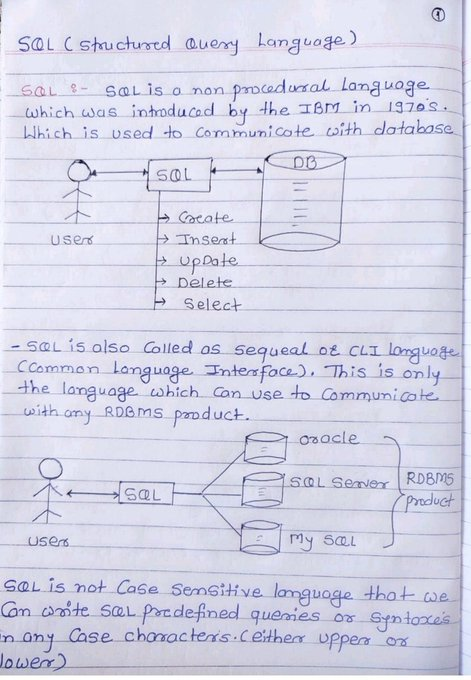 1
SQL (Structured Query Language)
SQL :- SQL is a non procedural Language
which was introduced by the IBM in 1970's.
Which is used to communicate with database
DB
SQL
User
→ Create
→ Insert
→ UpDate
→ Delete
→ Select
- SQL is also Called as sequeal or CLI language
(Common Language Interface). This is only
the language which can use to Communicate
with any RDBMS product.
Oracle
SQL Server
My SQL
RDBMS
product
SQL
User
SQL is not Case Sensitive language that we
Can write SQL predefined queries or Syntaxes
in any Case characters. (either upper or
lower)